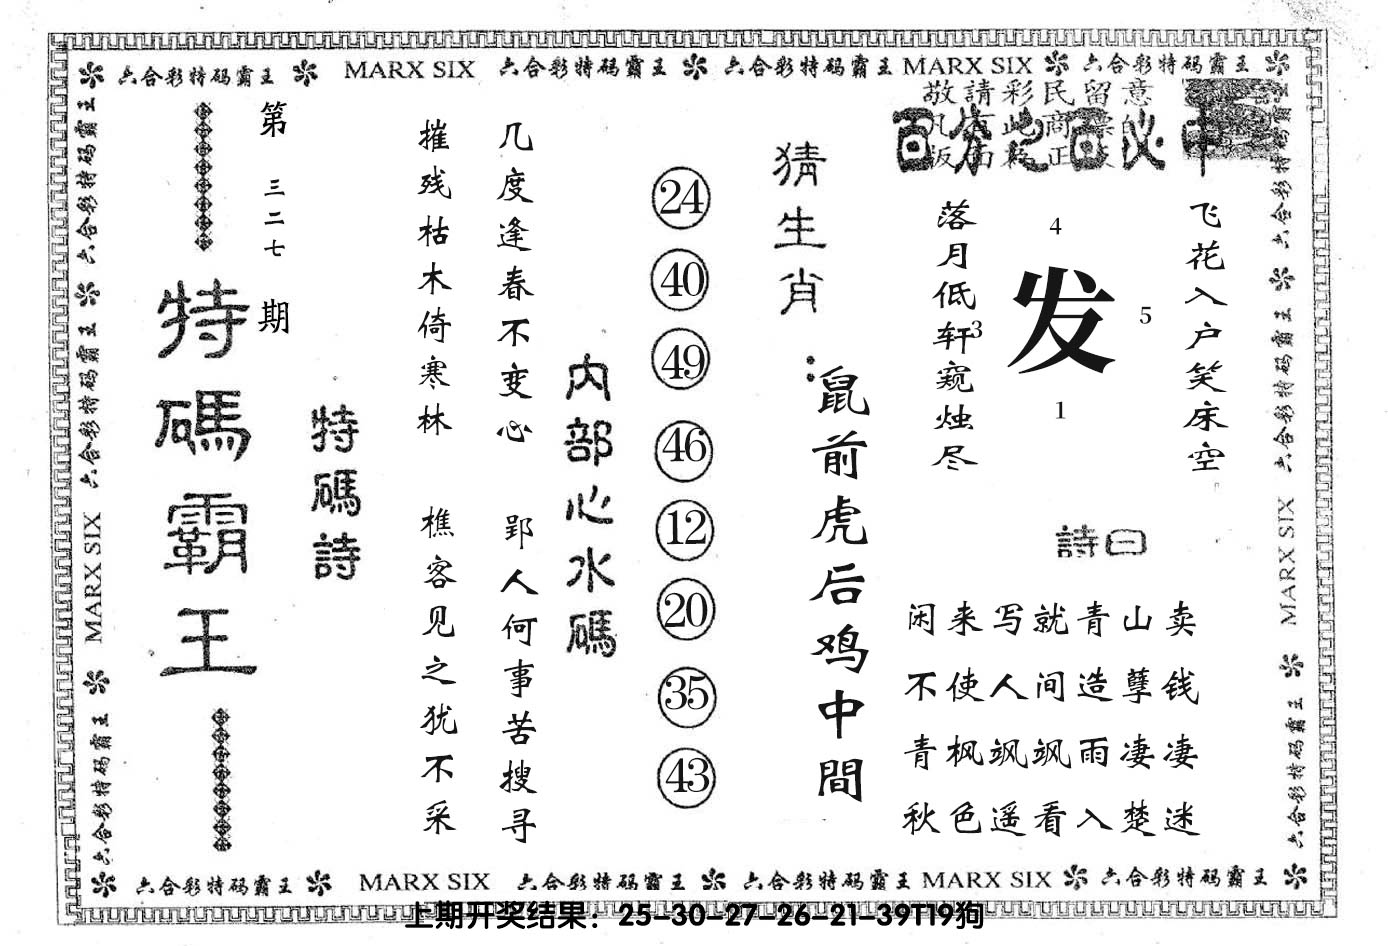 六合彩特码霸王 MARX SIX 六合彩特码霸王 六合彩特码霸王 MARX SIX 六合彩特码霸王
敬請彩民留意
百分之百必中
飞花入户笑床空
4
发
5
3
1
落月低轩窥烛尽
詩曰
闲来写就青山卖
不使人间造孽钱
青枫飒飒雨凄凄
秋色遥看入楚迷
猜生肖：
鼠前虎后鸡中間
24
40
49
46
12
20
35
43
内部心水碼
几度逢春不变心 郢人何事苦搜寻
摧残枯木倚寒林 樵客见之犹不采
特碼詩
第三二七期
特碼霸王
六合彩特码霸王 六合彩特码霸王 MARX SIX 六合彩特码霸王
六合彩特码霸王 六合彩特码霸王 MARX SIX 六合彩特码霸王
六合彩特码霸王 MARX SIX 六合彩特码霸王 六合彩特码霸王 MARX SIX 六合彩特码霸王
上期开奖结果：25-30-27-26-21-39T19狗